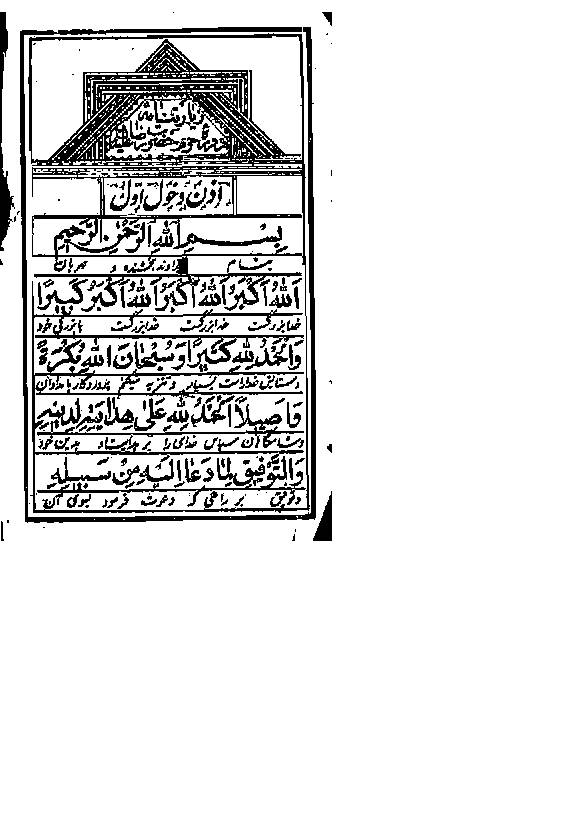 زیارتنامه
اذن دخول اول
بِسْمِ اللهِ الرَّحْمٰنِ الرَّحیمِ
بنام خداوند بخشنده و مهربان
اَللهُ اَكْبَرُ اَللهُ اَكْبَرُ اَللهُ اَكْبَرُ كَبیرًا
خدا بزرگست خدا بزرگست خدا بزرگست با بزرگی خود
وَالْحَمْدُ لِلّٰهِ كَثیرًا وَسُبْحٰانَ اللهِ بُكْرَةً
و ستایش خدا راست بسیار و تنزیه میکنم پروردگار بامدادان
وَاَصیلاً اَلْحَمْدُ لِلّٰهِ عَلیٰ هِدٰایَتِهِ لِدینِهِ
و شامگاهان سپاس خدای را بر هدایت او بدین خود
وَالتَّوْفیقِ لِمٰا دَعٰا اِلَیْهِ مِنْ سَبیلِهِ
و توفیق بر راهی که دعوت فرمود بسوی آن